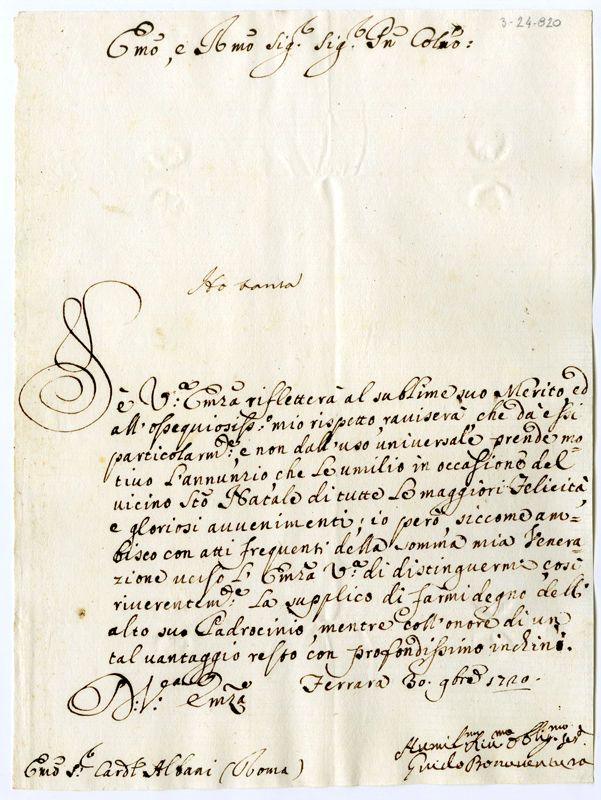 3-24-820
Emo, e Rmo Sig.r Sig.r Pn Colmo:
Ho tanta
Sè V.ra Emza rifletterà al sublime suo Merito, ed
all'ossequiosiss.o mio rispetto, raviserà, che dà essi
particolarm.te, e non dall'uso universale prende mo=
tivo l'annunzio, che Le umilio in occassione del
vicino Sto Natale di tutte le maggiori Felicità
e gloriosi avvenimenti; io però, siccome am=
bisco con atti frequenti della somma mia Venera=
zione verso L'Emza V.ra di distinguermi, così
riverentem.te La supplico di farmi degno dell'
alto suo Padrocinio, mentre coll'onore di un
tal vantaggio resto con profondissimo inchino.
D: V.ra Emza Ferrara 30. 9bre 1720.
Humil.mo Obblig.mo
Guido Bonaventura
Emo S.r Card.l Albani (Roma)